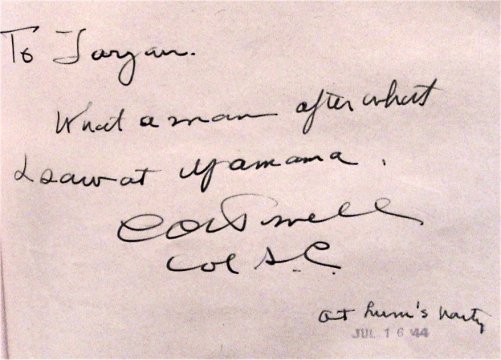 To Tarzan.
What a man after what
I saw at Yamama.
Col S.C.
At Lum's Party
JUL 16 '44